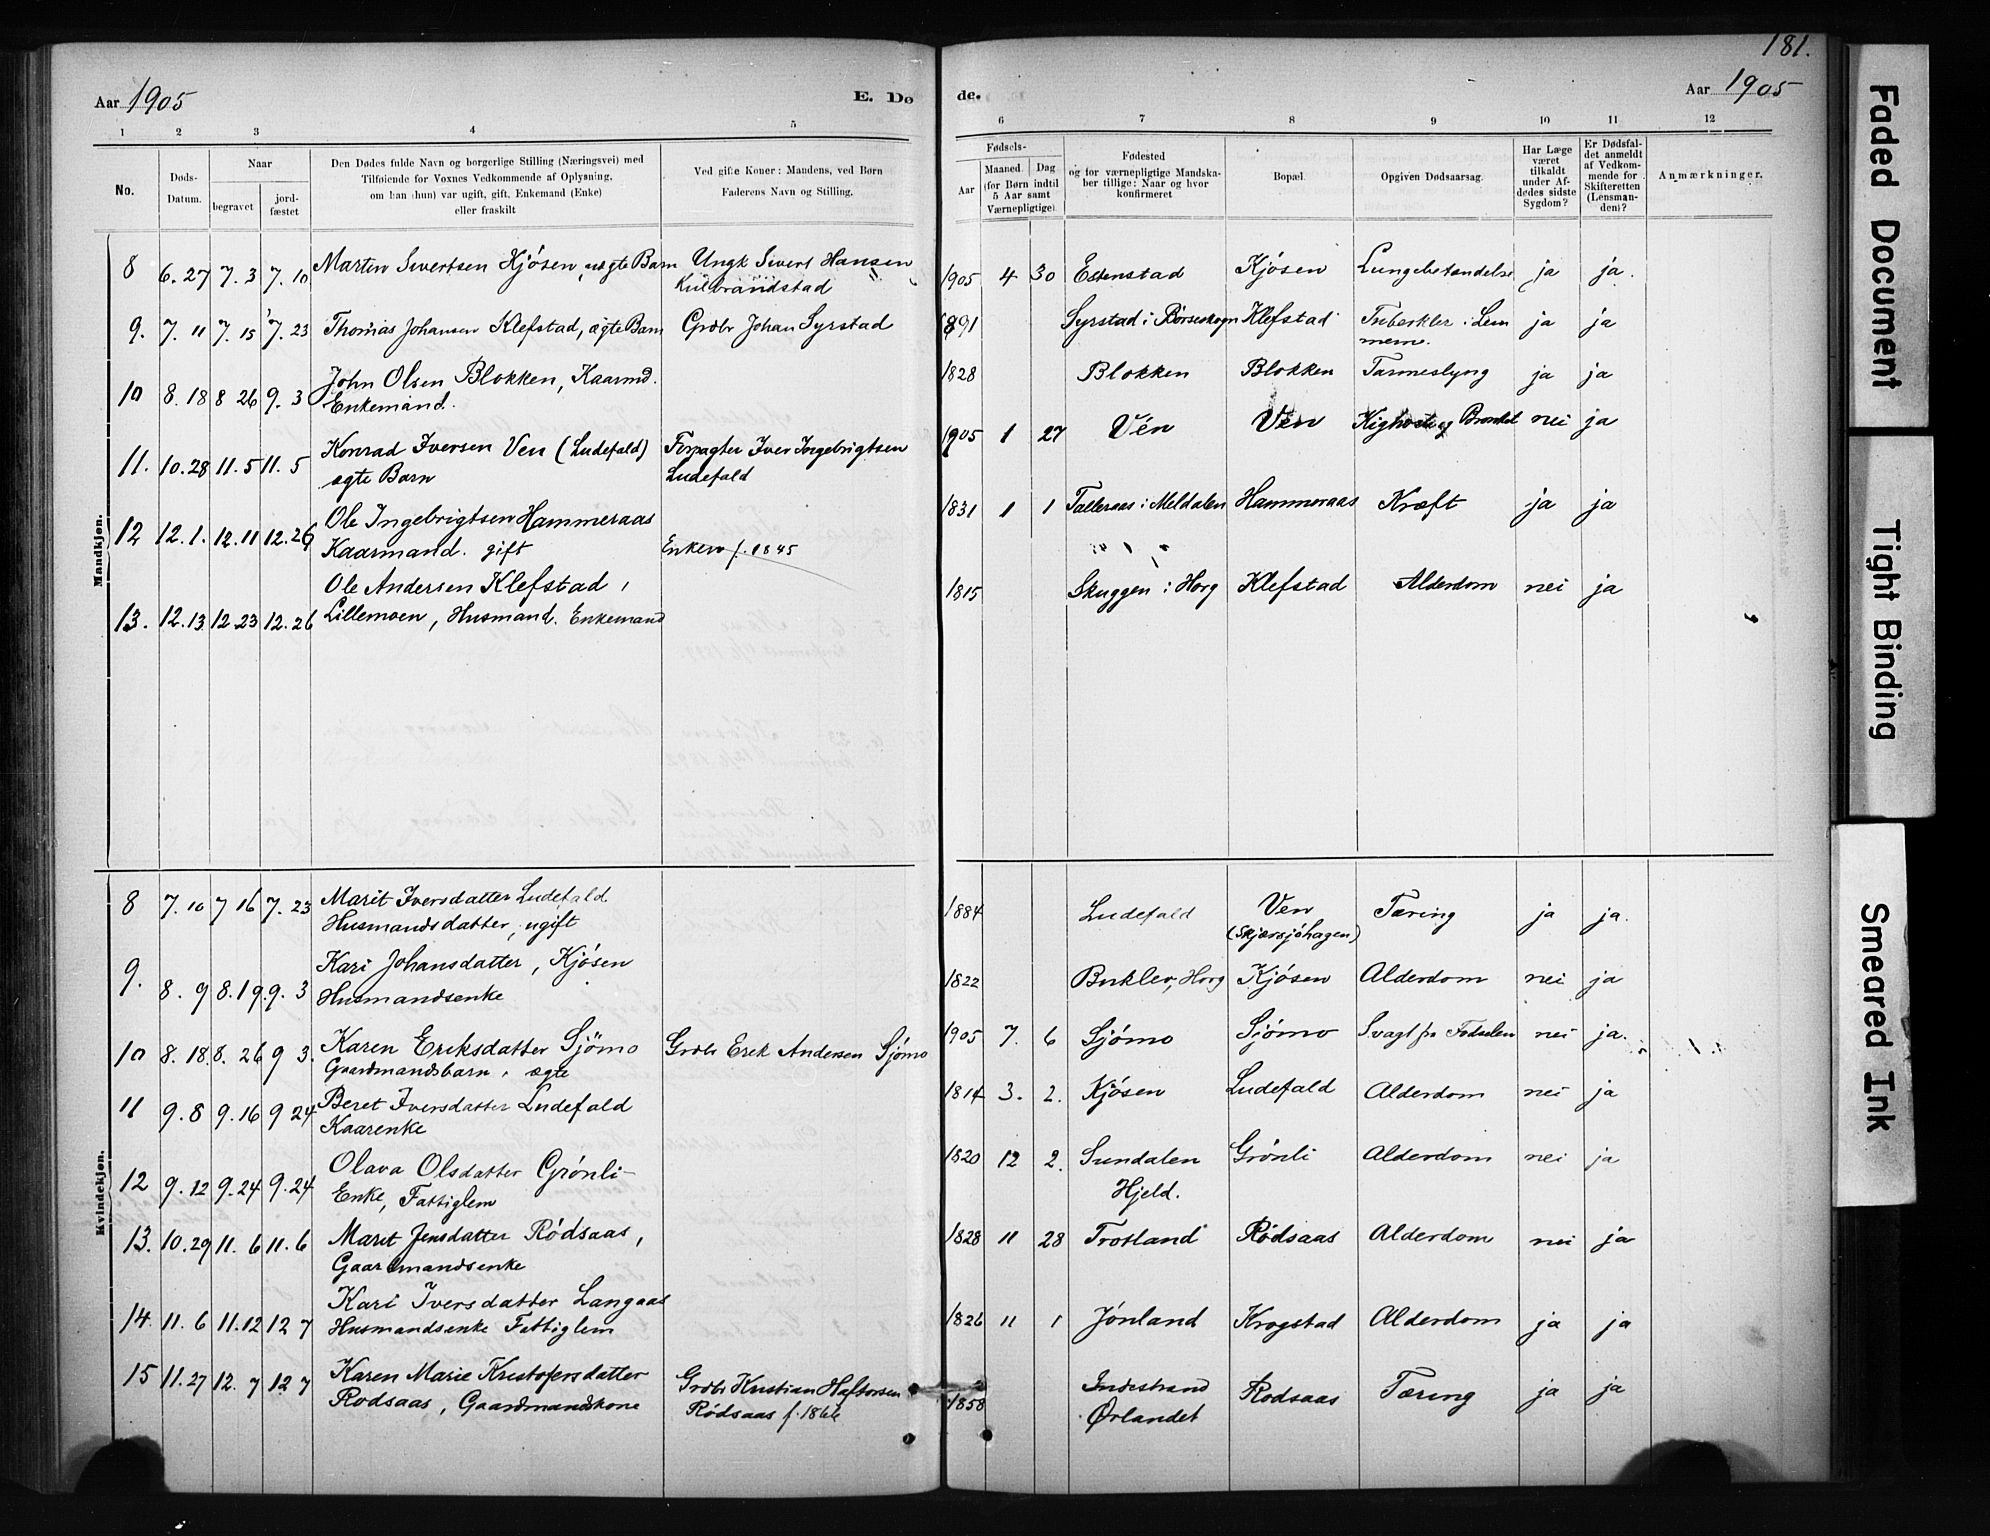 181.
Aar 1905 E. Dø
de. Aar 1905
1 2 3 4 5 6 7 8 9 10 11 12
No.
Døds-
Datum.
Naar
begravet
jord-
fæstet
Den Dødes fulde Navn og borgerlige Stilling (Næringsvei) med
Tilføiende for Voxnes Vedkommende af Oplysning,
om han (hun) var ugift, gift, Enkemand (Enke)
eller fraskilt
Ved gifte Koner: Mandens, ved Børn
Faderens Navn og Stilling.
Fødsels-
Aar
Maaned Dag
(for Børn indtil
5 Aar samt
Værnepligtige).
Fødested
og for værnepligtige Mandska-
ber tillige: Naar og hvor
konfirmeret
Bopæl.
Opgiven Dødsaarsag.
Har Læge
været
tilkaldt
under Af-
dødes sidste
Sygdom?
Er Dødsfal-
det anmeldt
af Vedkom-
mende for
Skifteretten
(Lensman-
den)?
Anmærkninger.
Mandkjøn.
8 6.27 7.3 7.10 Martin Sivertsen Kjósen, uægte Barn Ungk Sivert Hansen 1905 4 30 Estenstad Kjósen Lungebetændelse ja ja.
Kulbrandstad
9. 7.11 7.15 7.23 Thomas Johansen Klefstad, ægte Barn Grdbr Johan Syrstad 1891 Syrstad i Børseskogn Klefstad Tuberkler i Lem ja ja
merne.
10 8.18 8 26 9.3 John Olsen Blokken, Kaarmd. 1828 Blokken Blokken Tarmeslyng ja ja
Enkemand.
11. 10.28 11.5 11.5 Konrad Iversen Ven (Ludefald) Forpagter Iver Ingebrigtsen 1905 1 27 Vén Ven Kighoste og nei ja
ægte Barn Ludefald
12 12.1. 12.11 12.26 Ole Ingebrigtsen Hammeraas 1831 1 1 Talleraas i Meldalen Hammeraas Kræft ja ja
Kaarmand. gift Enken f. 1845
13. 12.13 12.23 12.26 Ole Andersen Klefstad, 1815 Skuggen i Horg Klefstad Alderdom nei ja
Lillemoen, Husmand. Enkemand
Kvindekjøn.
8 7.10 7 16 7.23 Marit Iversdatter Ludefald 1884 Ludefald Ven Tæring ja ja.
Husmandsdatter, ugift (Skjærsjóhagen)
9. 8.9 8.19 9.3 Kari Johansdatter, Kjósen 1822 Horg Kjósen Alderdom nei ja
Husmandsenke
10 8.18 8.26 9 3. Karen Eriksdatter Sjömo Grdbr Erik Andersen Sjómo 1905 7. 6 Sjómo Sjómo Svagt fra Fødselen nei ja.
Gaardmandsbarn, ægte
11 9.8 9.16 9.24 Beret Iversdatter Ludefald 1814 3. 2. Kjósen Ludefald Alderdom nei ja
Kaarenke
12 9.12 9.24 9.24 Olava Olsdatter Grónli 1820 12 2. Sundalen Grónli Alderdom nei ja
Enke, Fattiglem Hjeld.
13. 10.29 11.6 11.6 Marit Jensdatter Ródsaas, 1828 11 28 Trotland Ródsaas Alderdom nei ja
Gaardmandsenke
14. 11.6 11.12 12 7 Kari Iversdatter Langaas 1826 11 1 Jónland Krogstad Alderdom ja ja
Husmandsenke Fattiglem
15 11.27 12.7 12 7 Karen Marie Kristofersdatter Grdbr Kristian Haftorsen 1858 Indestrand Rodsaas Tæring ja ja
Rodsaas, Gaardmandskone Ródsaas f. 1866 Ørlandet
Faded Document
Tight Binding
Smeared Ink